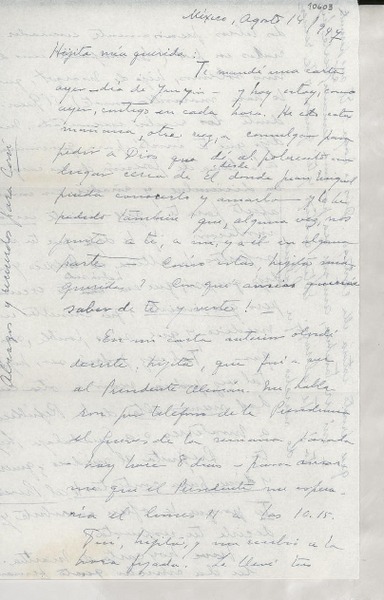 10603
México, Agosto 14 / 1947
Hijita mía querida:
Te mandé una carta
ayer – día de Yin Yin – y hoy estoy, como
ayer, contigo en cada hora. He ido esta
mañana, otra vez, a comulgar para
pedir a Dios que dé al pobrecito un
lugar cerca de El desde donde
pueda conocerlo y amarlo – y le he
pedido también que, alguna vez, nos
junte a ti, a mí, y a él en alguna
parte – Cómo estás, hijita mía
querida? Con qué ansias quisiera
saber de ti y verte! –
En mi carta anterior olvidé
decirte, hijita, que fuí a ver
al Presidente Alemán. Me habla
ron por teléfono de la Presidencia
el jueves de la semana pasada
– hoy hace 8 días – para avisar
me que el Presidente me espera
ría el lunes 11 a las 10.15.
Fuí, hijita, y me recibió a la
hora fijada. Le llevé tus
Abrazos y recuerdos para Coni